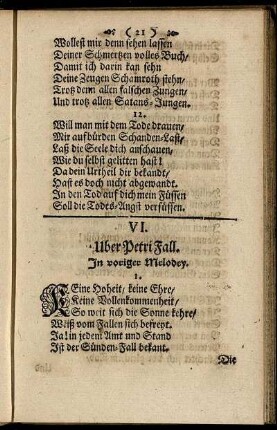 (21)
Wollest mir denn sehen lassen
Deiner Schmertzen volles Buch/
Damit ich darin kan sehn
Deine Zeugen Schamroth stehn/
Trotz denn allen falschen Zungen/
Und trotz allen Satans-Jungen.
12.
Will man mit dem Tode drauen/
Mir aufbürden Schanden-Last/
Laß die Seele dich anschauen/
Wie du selbst gelitten hast!
Da dein Urtheil dir bekandt/
Hast es doch nicht abgewandt.
In den Tod auch dich mein Füssen
Soll die Todes-Angst versüssen.
VI.
Uber Petri Fall.
In voriger Melodey.
1.
KEine Hoheit/ keine Ehre/
Keine Vollenkommenheit/
So weit sich die Sonne kehre/
Weiß vom Fallen sich befreyt.
Ja! in jedem Amt und Stand
Ist der Sünden-Fall bekant.
Die